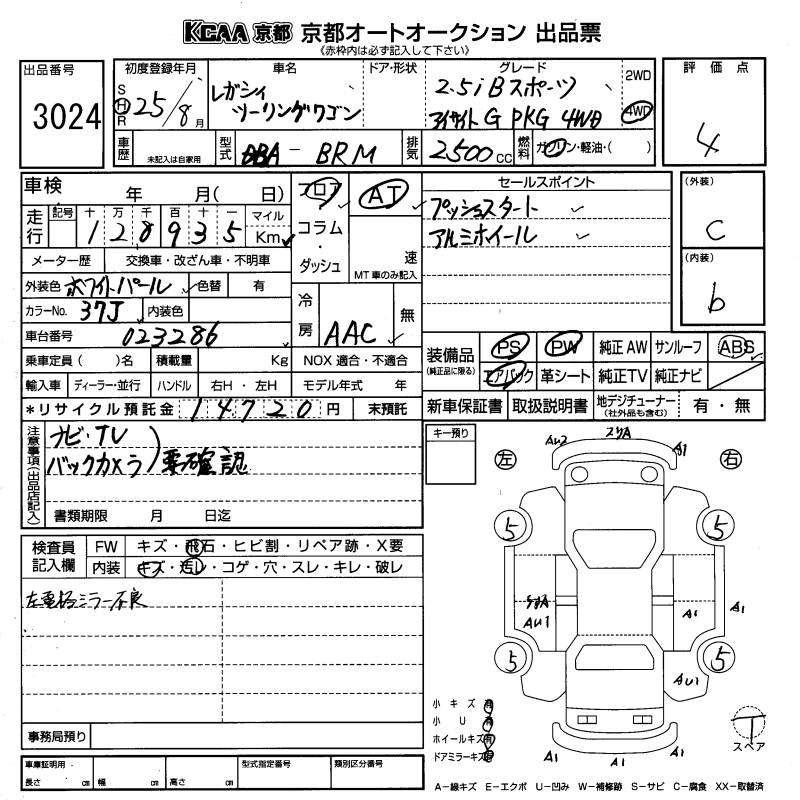 KCAA 京都 京都オートオークション 出品票
《赤枠内は必ず記入して下さい》
出品番号
3024
初度登録年月
S
H
R
25/8月
車名
レガシィ
ツーリングワゴン
ドア・形状
グレード
2.5i Bスポーツ
アイサイト G PKG 4WD
2WD
4WD
評価点
4
車歴
未記入は自家用
型式
DBA - BRM
排気
2500cc
燃料
ガソリン・軽油・( )
車検
年 月( 日)
走行
記号
十 万 千 百 十 一
128935
マイル
Km
メーター歴
交換車・改ざん車・不明車
外装色
ホワイトパール
色替
有
カラーNo.
37J
内装色
車台番号
023286
乗車定員( )名
積載量
Kg
輸入車
ディーラー・並行
ハンドル
右H・左H
フロア
・
コラム
・
ダッシュ
AT
速
MT車のみ記入
冷房
AAC
無
NOX 適合・不適合
モデル年式 年
*リサイクル預託金
14720円
未預託
セールスポイント
プッシュスタート
アルミホイール
(外装)
C
(内装)
b
装備品
(純正品に限る)
PS
PW
純正AW
サンルーフ
ABS
エアバック
革シート
純正TV
純正ナビ
新車保証書
取扱説明書
地デジチューナー
(社外品も含む)
有・無
注意事項(出品店記入)
ナビ・TV
バックカメラ
要確認
書類期限 月 日迄
検査員
記入欄
FW
キズ・飛石・ヒビ割・リペア跡・X要
内装
キズ・汚レ・コゲ・穴・スレ・キレ・破レ
左電格ミラー不良
事務局預り
車庫証明用
長さ cm
幅 cm
高さ cm
型式指定番号
類別区分番号
キー預り
左
右
AU2
スリA
A1
5
5
AU1
A1
A1
5
5
AU1
小キズ 有
小U 有
ホイールキズ 有
ドアミラーキズ 有
A1
A1
A1
T
スペア
A−線キズ E−エクボ U−凹み W−補修跡 S−サビ C−腐食 XX−取替済